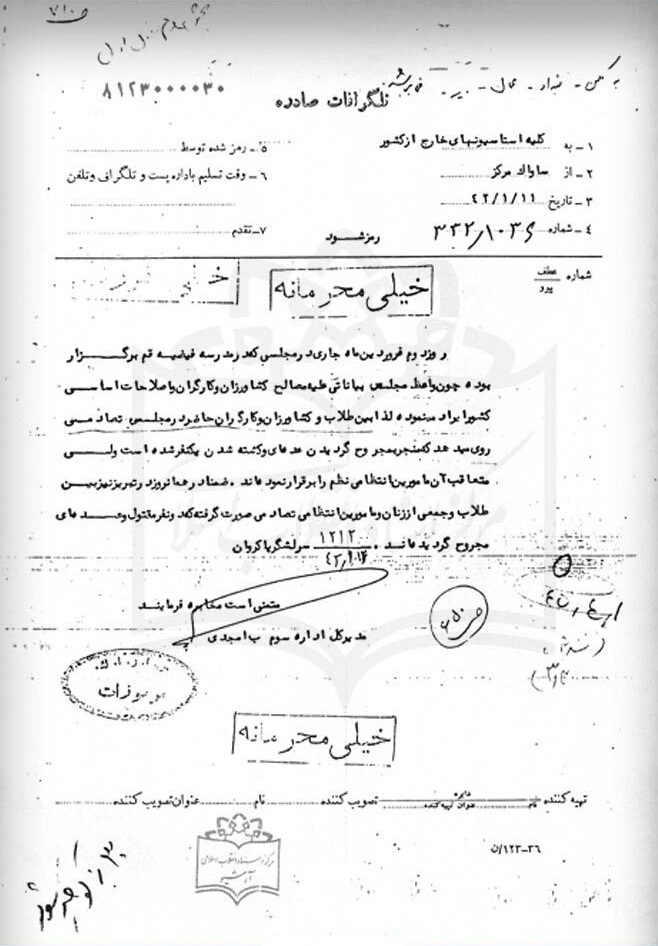 ۸۱۲۳۰۰۰۰۳۰
تلگرافات صادره
۱ـ به کلیه استاسیونهای خارج از کشور
۵ـ رمز شده توسط
۲ـ از ساواک مرکز
۶ـ وقت تسلیم باداره پست و تلگرافی وتلفن
۳ـ تاریخ ۴۲/۱/۱۱
۴ـ شماره ۳۳۲/۱۰۳۶
رمز شود
۷ـ تقدم
شماره عطف
پیرو
خیلی محرمانه
روز دوم فروردین ماه جاری در مجلسی که در مدرسه فیضیه قم برگزار
بوده چون واعظ مجلس بیاناتی علیه مصالح کشاورزان و کارگران و اصلاحات اساسی
کشور ایراد مینموده لذا بین طلاب و کشاورزان و کارگران حاضر در مجلس تصادمی
روی میدهد که منجر به مجروح گردیدن عده‌ای و کشته شدن یکنفر شده است ولی
متعاقب آن مامورین انتظامی نظم را برقرار نموده‌اند . ضمنا در همانروز در تبریز نیز بین
طلاب و جمعی از زنان و مامورین انتظامی تصادمی صورت گرفته که دو نفر مقتول و عده‌ای
مجروح گردیده‌اند . سرلشگر پاکروان
۱۲۱۲
متمنی است مخابره فرمایند
مدیرکل اداره سوم ب امجدی
مرموزات
خیلی محرمانه
تهیه کننده
نام
عنوان تهیه کننده
تصویب کننده
نام
عنوان تصویب کننده
مرکز اسناد انقلاب اسلامی
آرشیو
۳۶-۱۲۳/ن